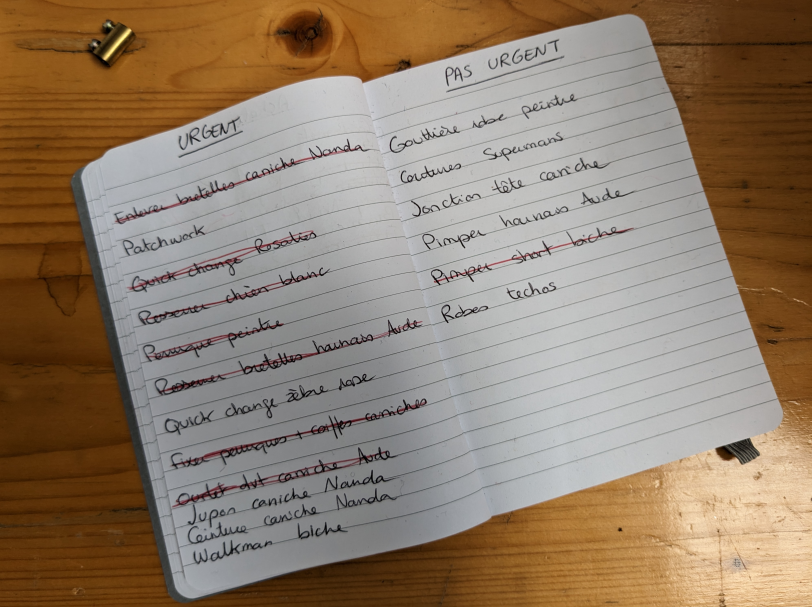 URGENT
Enlever bretelles caniche Nanda
Patchwork
Quick change Rosalies
Resserrer chien blanc
Perruque peintre
Resserrer bretelles harnais Aude
Quick change zèbre rose
Fixer perruques + coiffes caniches
Ourlet dvt caniche Aude
Jupon caniche Nanda
Ceinture caniche Nanda
Walkman biche
PAS URGENT
Gouttière robe peintre
Coutures Supermans
Jonction tête caniche
Pimper harnais Aude
Pimper short biche
Robes techos